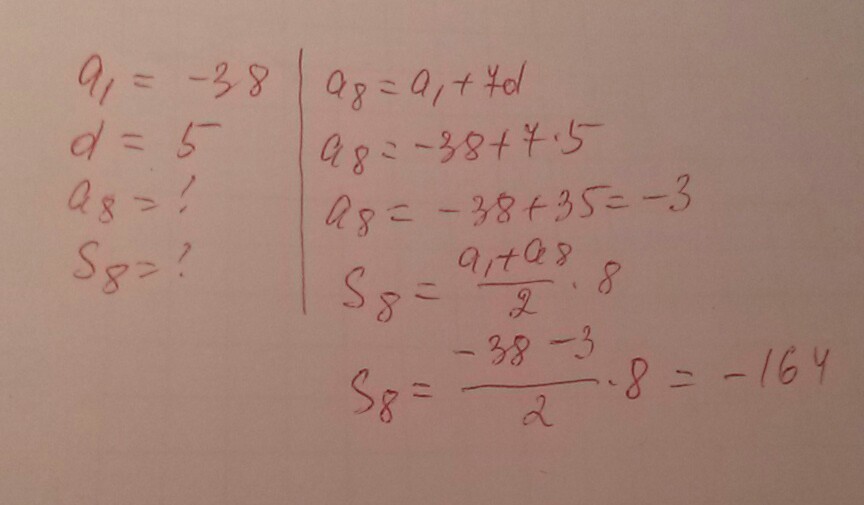 a₁ = -38
d = 5
a₈ = ?
S₈ = ?
a₈ = a₁ + 7d
a₈ = -38 + 7·5
a₈ = -38 + 35 = -3
S₈ = (a₁ + a₈)/2 · 8
S₈ = (-38 - 3)/2 · 8 = -164